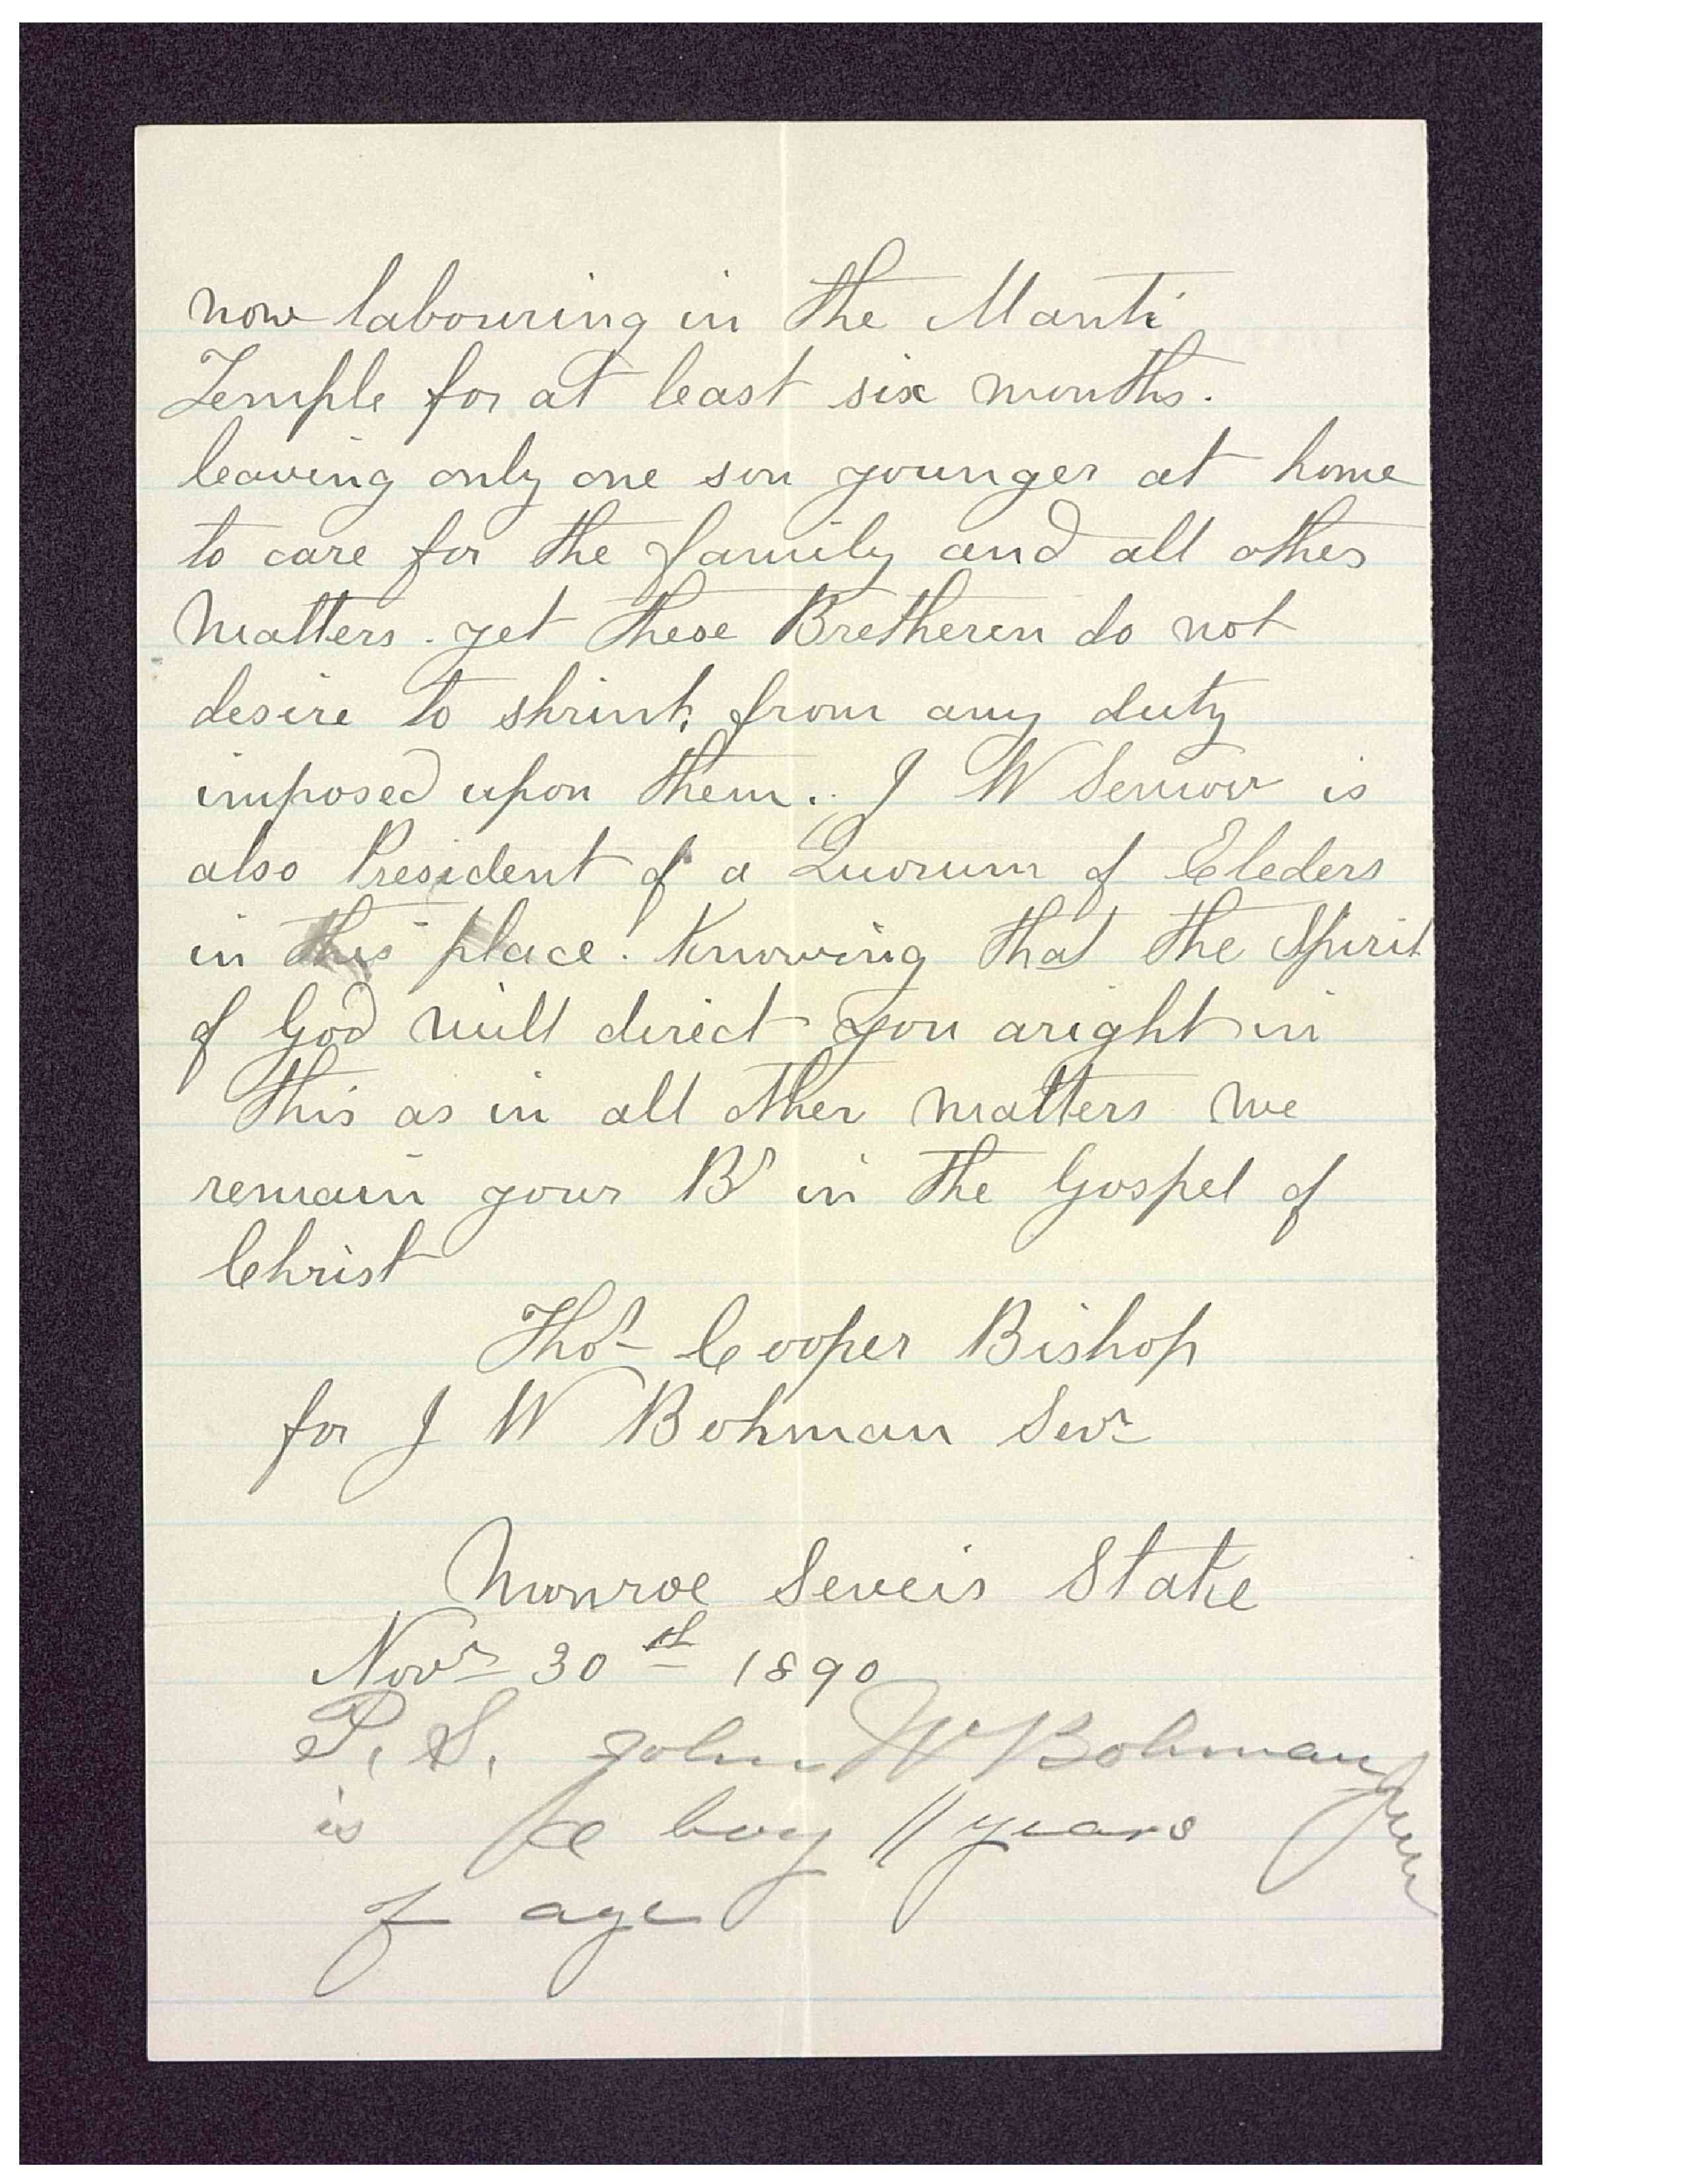 now labouring in the Manti
Temple for at least six months.
leaving only one son younger at home
to care for the family and all other
matters. yet these Bretheren do not
desire to shrink from any duty
imposed upon them. J W Senior is
also President of a Quorum of Eleders
in this place. Knowing that the Spirit
of God will direct you aright in
this as in all other matters we
remain your Br in the Gospel of
Christ
Thos Cooper Bishop
for J W Bohman Senr
Monroe Seveir Stake
Novr 30st 1890
P. S. John W Bohman Jun
is a boy 11 years
of age